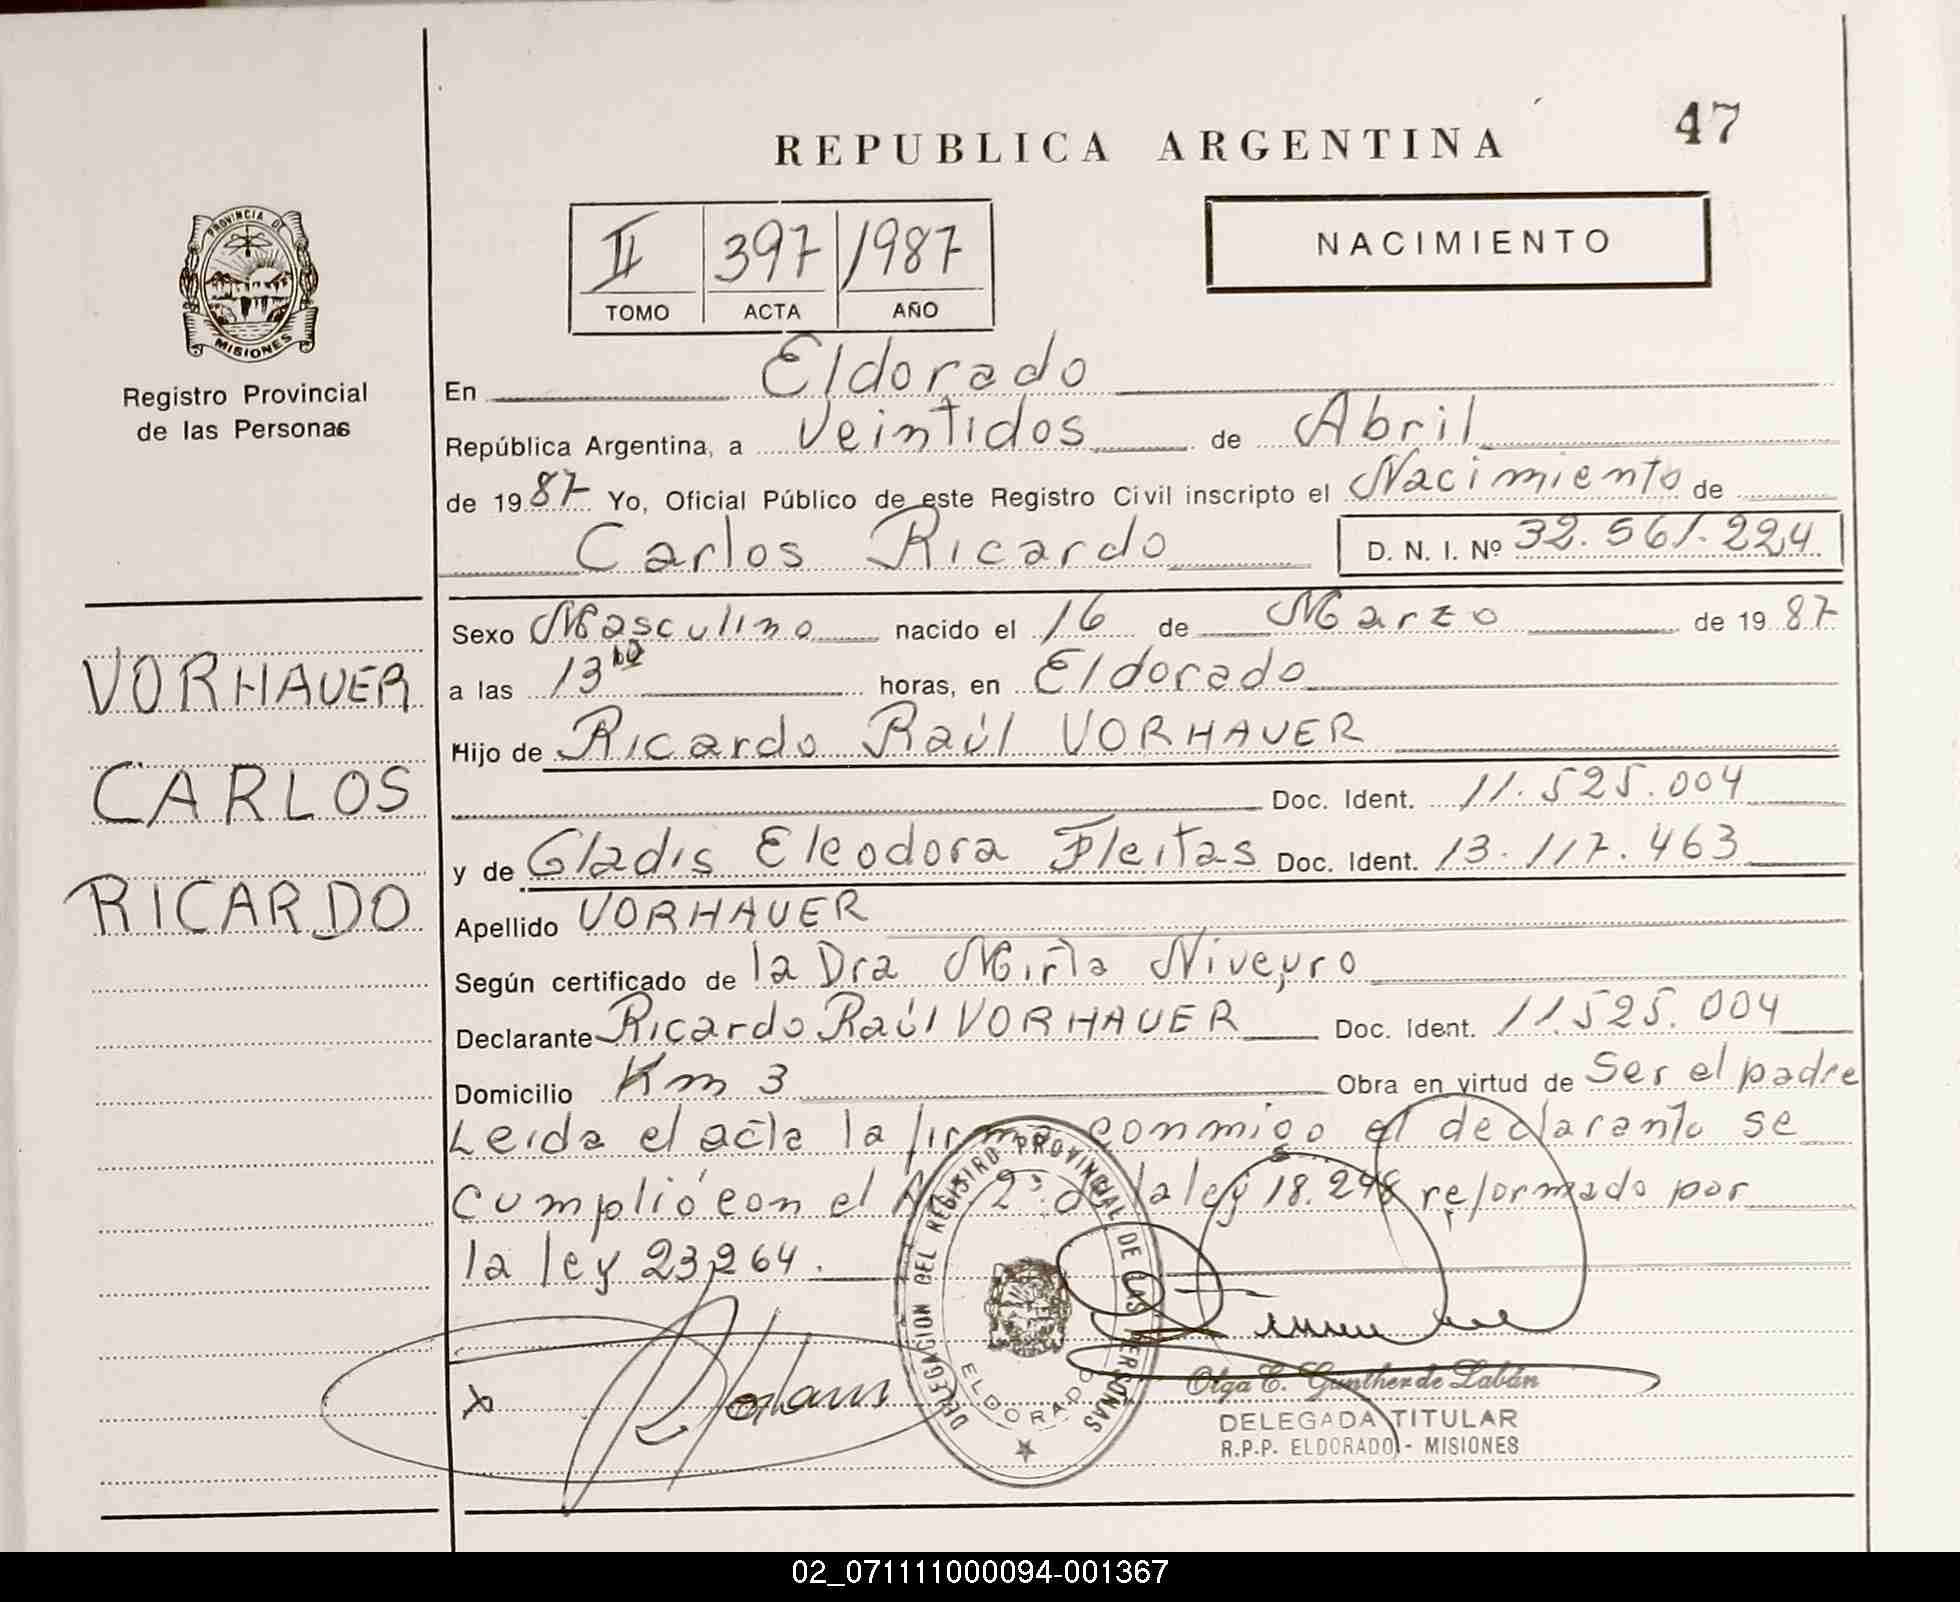 47
REPUBLICA ARGENTINA
PROVINCIA DE
MISIONES
Registro Provincial
de las Personas
II 397 1987
TOMO ACTA AÑO
NACIMIENTO
VORHAUER
CARLOS
RICARDO
En Eldorado
República Argentina, a Veintidos de Abril
de 1987 Yo, Oficial Público de este Registro Civil inscripto el Nacimiento de
Carlos Ricardo D. N. I. Nº 32.561.224
Sexo Masculino nacido el 16 de Marzo de 1987
a las 13 horas, en Eldorado
Hijo de Ricardo Raúl VORHAUER
Doc. Ident. 11.525.004
y de Gladis Eleodora Fleitas Doc. Ident. 13.117.463
Apellido VORHAUER
Según certificado de la Dra Mirta Niveyro
Declarante Ricardo Raúl VORHAUER Doc. Ident. 11.525.004
Domicilio Km 3 Obra en virtud de Ser el padre
Leida el acta la firma conmigo el declarante se
cumplió con el Art 2º de la ley 18.248 reformado por
la ley 23264.
DELEGACION DEL REGISTRO PROVINCIAL DE LAS PERSONAS
ELDORADO
x
Olga E. Gunther de Labán
DELEGADA TITULAR
R.P.P. ELDORADO - MISIONES
02_071111000094-001367